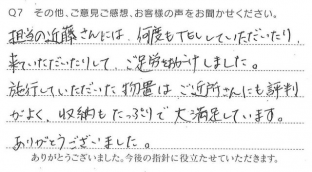 Q7 その他、ご意見ご感想、お客様の声をお聞かせください。
担当の近藤さんには、何度もTELしていただいたり、
来ていただいたりして、ご足労お掛けしました。
施行していただいた物置はご近所さんにも評判
がよく、収納もたっぷりで大満足しています。
ありがとうございました。
ありがとうございました。今後の指針に役立たせていただきます。